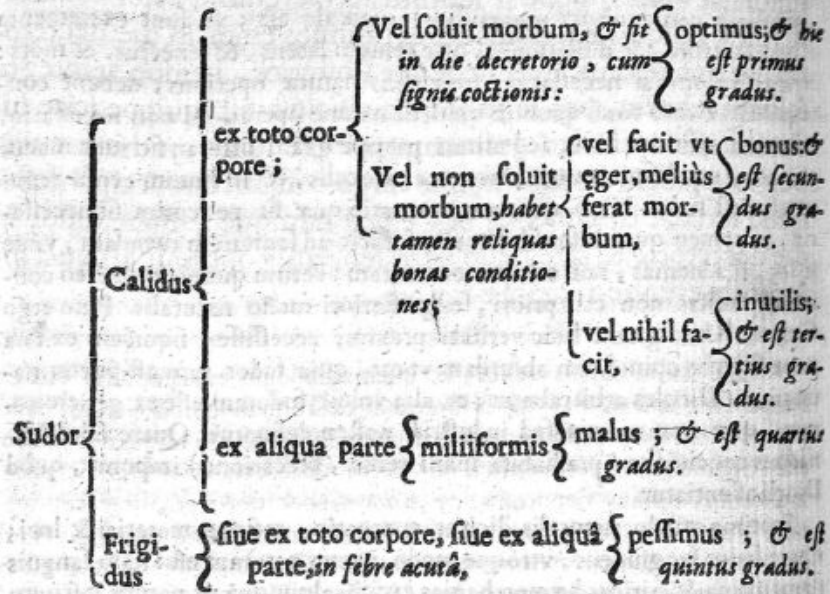 Vel soluit morbum, & fit
in die decretorio, cum
signis coctionis:
optimus; & hic
est primus
gradus.
ex toto cor-
pore;
Vel non soluit
morbum, habet
tamen reliquas
bonas conditio-
nes;
vel facit vt
eger, meliùs
ferat mor-
bum,
bonus: &
est secun-
dus gra-
dus.
vel nihil fa-
cit,
inutilis;
& est ter-
tius gra-
dus.
Calidus
Sudor
ex aliqua parte
miliiformis
malus; & est quartus
gradus.
Frigi-
dus
siue ex toto corpore, siue ex aliquâ
parte, in febre acutâ,
pessimus; & est
quintus gradus.